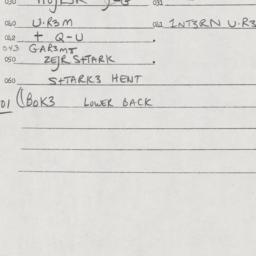 030
031
040 U.R3M
041 INT3RN U.R3
042 + Q-U
043 GAR3MT
050 ZEJR S+TARK
060 S+TARK3 HENT
01 (BOK3 LOWER BACK